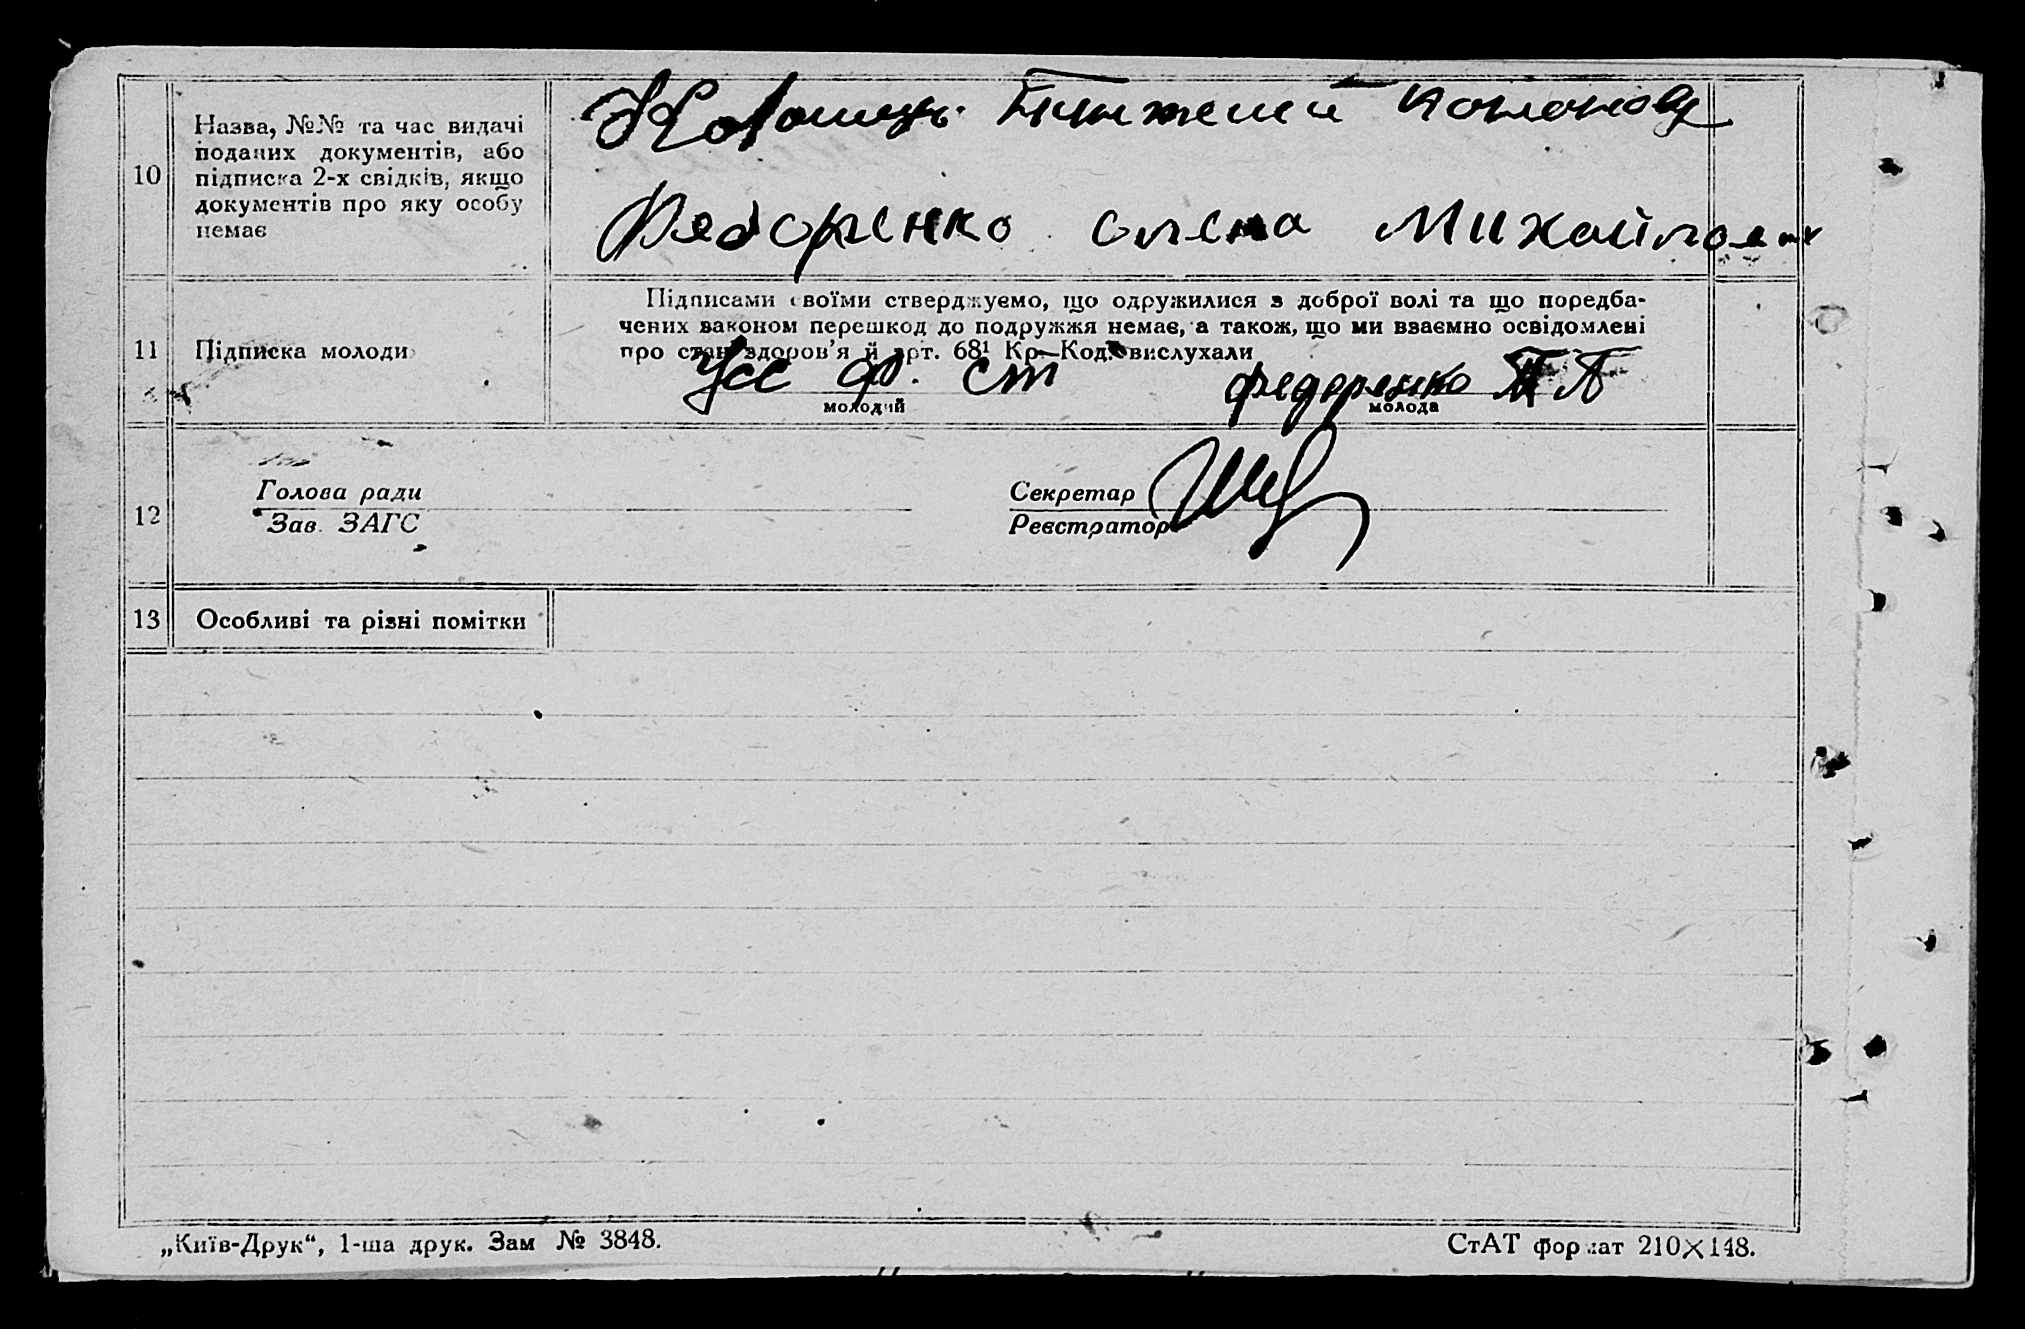 10
Назва, №№ та час видачі
поданих документів, або
підписка 2-х свідків, якщо
документів про яку особу
немає
Федоренко олена Михайловна
11
Підписка молоди
Підписами своїми стверджуємо, що одружилися з доброї волі та що передба-
чених законом перешкод до подружжя немає, а також, що ми взаємно освідомлені
про стан здоров'я й арт. 68¹ Кр-Код. вислухали
Усс Ф. Ст
молодий
Федоренко П
молода
12
Голова ради
Зав. ЗАГС
Секретар
Реєстратор
13
Особливі та різні помітки
„Київ-Друк“, 1-ша друк. Зам № 3848.
СтАТ формат 210×148.